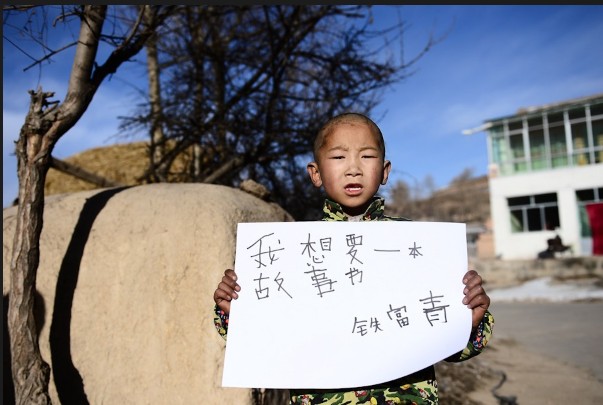 我想要一本
故事书
铁富青